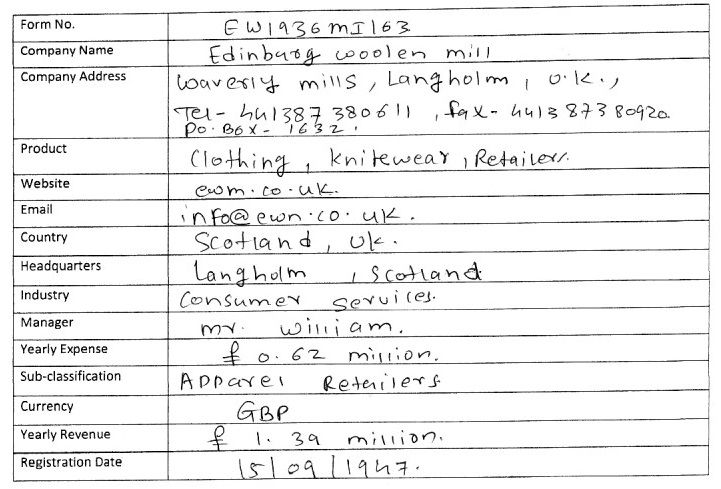 Form No. EW1936MI163
Company Name Edinburg woolen mill
Company Address Waverly mills, Langholm, U.K.,
Tel- 441387380611, fax- 441387380920
Po. Box- 1632.
Product Clothing, knitewear, Retailers.
Website ewm.co.uk.
Email info@ewn.co.uk.
Country Scotland, UK.
Headquarters Langholm, Scotland
Industry Consumer Services.
Manager mr. william.
Yearly Expense £ 0.62 million.
Sub-classification Apparel Retailers
Currency GBP
Yearly Revenue £ 1.39 million.
Registration Date 15/09/1947.